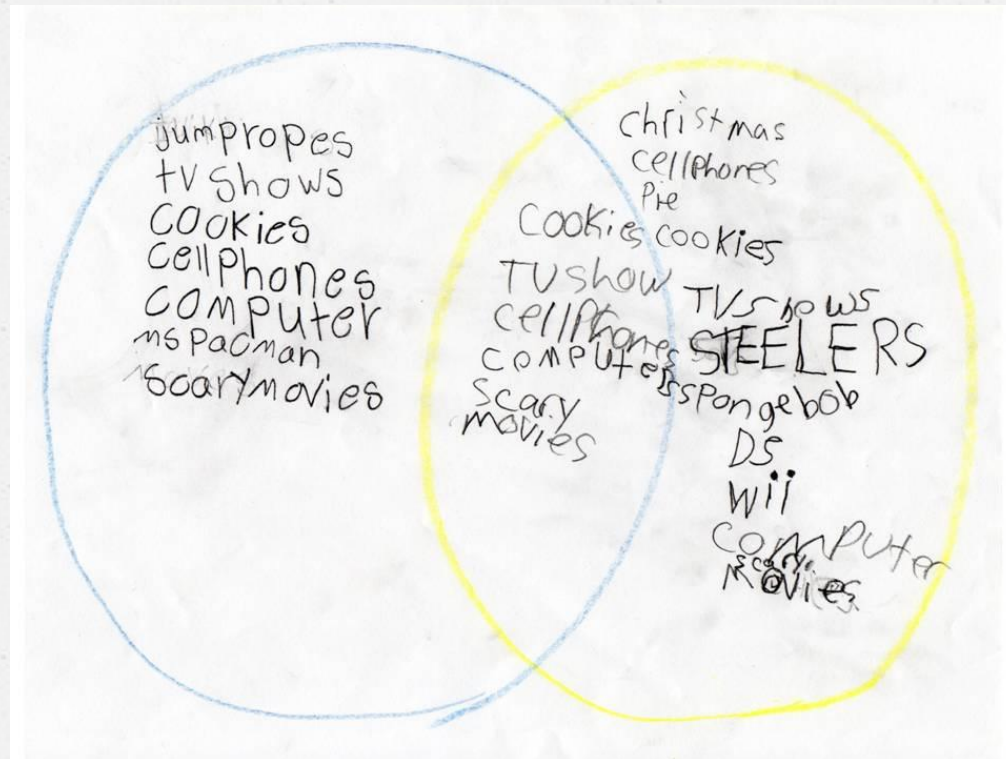 jumpropes
tv shows
cookies
cellphones
computer
ms pacman
scarymovies
cookies
TV show
cellphones
computers
scary
movies
christmas
cellphones
Pie
cookies
TV shows
STEELERS
spongebob
DS
wii
computer
scary
movies